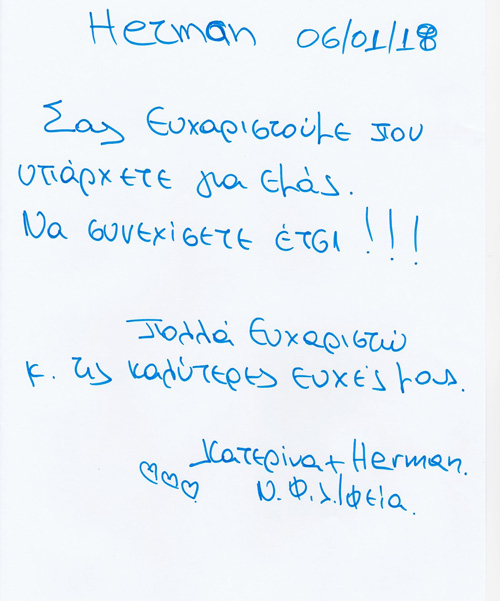 Herman 06/01/18
Σας Ευχαριστούμε που
υπάρχετε για εμάς.
Να συνεχίσετε έτσι !!!
Πολλά Ευχαριστώ
κ. τις καλύτερες ευχές μας.
Κατερίνα + Herman.